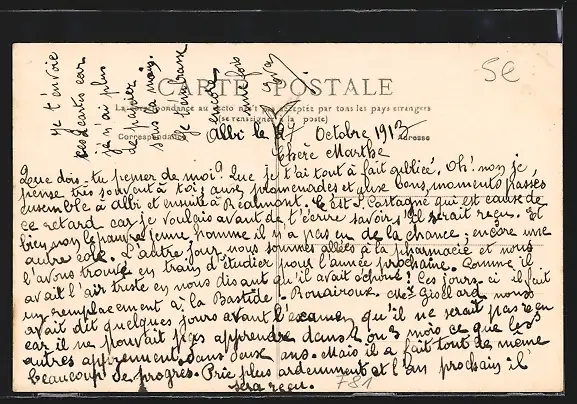 je t'envoie
ces cartes car
je n'ai plus
de papier
sous la main.
Je t'embrasse
encore
une fois
5€
CARTE POSTALE
La correspondance au recto n'est pas acceptée par tous les pays étrangers
(se renseigner à la poste)
Correspondance
Adresse
Albi le 27 Octobre 1913
Chère Marthe
Que dois-tu penser de moi? Que je t'ai tout à fait oubliée. Oh! non je
pense très souvent à toi; aux promenades et aux bons moments passés
ensemble à Albi et ensuite à Réalmont. C'est P. Castagné qui est cause de
ce retard car je voulais avant de t'écrire savoir s'il serait reçu. Et
bien non le pauvre jeune homme il n'a pas eu de la chance; encore une
autre colle. L'autre jour nous sommes allées à la pharmacie et nous
l'avons trouvé en train d'étudier pour l'année prochaine. Comme il
avait l'air triste en nous disant qu'il avait échoué! Ces jours-ci il fait
un remplacement à la Bastide-Rouairoux. Mr nous
avait dit quelques jours avant l'examen qu'il ne serait pas reçu
car il ne pouvait pas apprendre dans 1 ou 2 mois ce que les
autres apprennent dans deux ans. Mais il a fait tout de même
beaucoup de progrès. Prie plus ardemment et l'an prochain il
sera reçu.
781